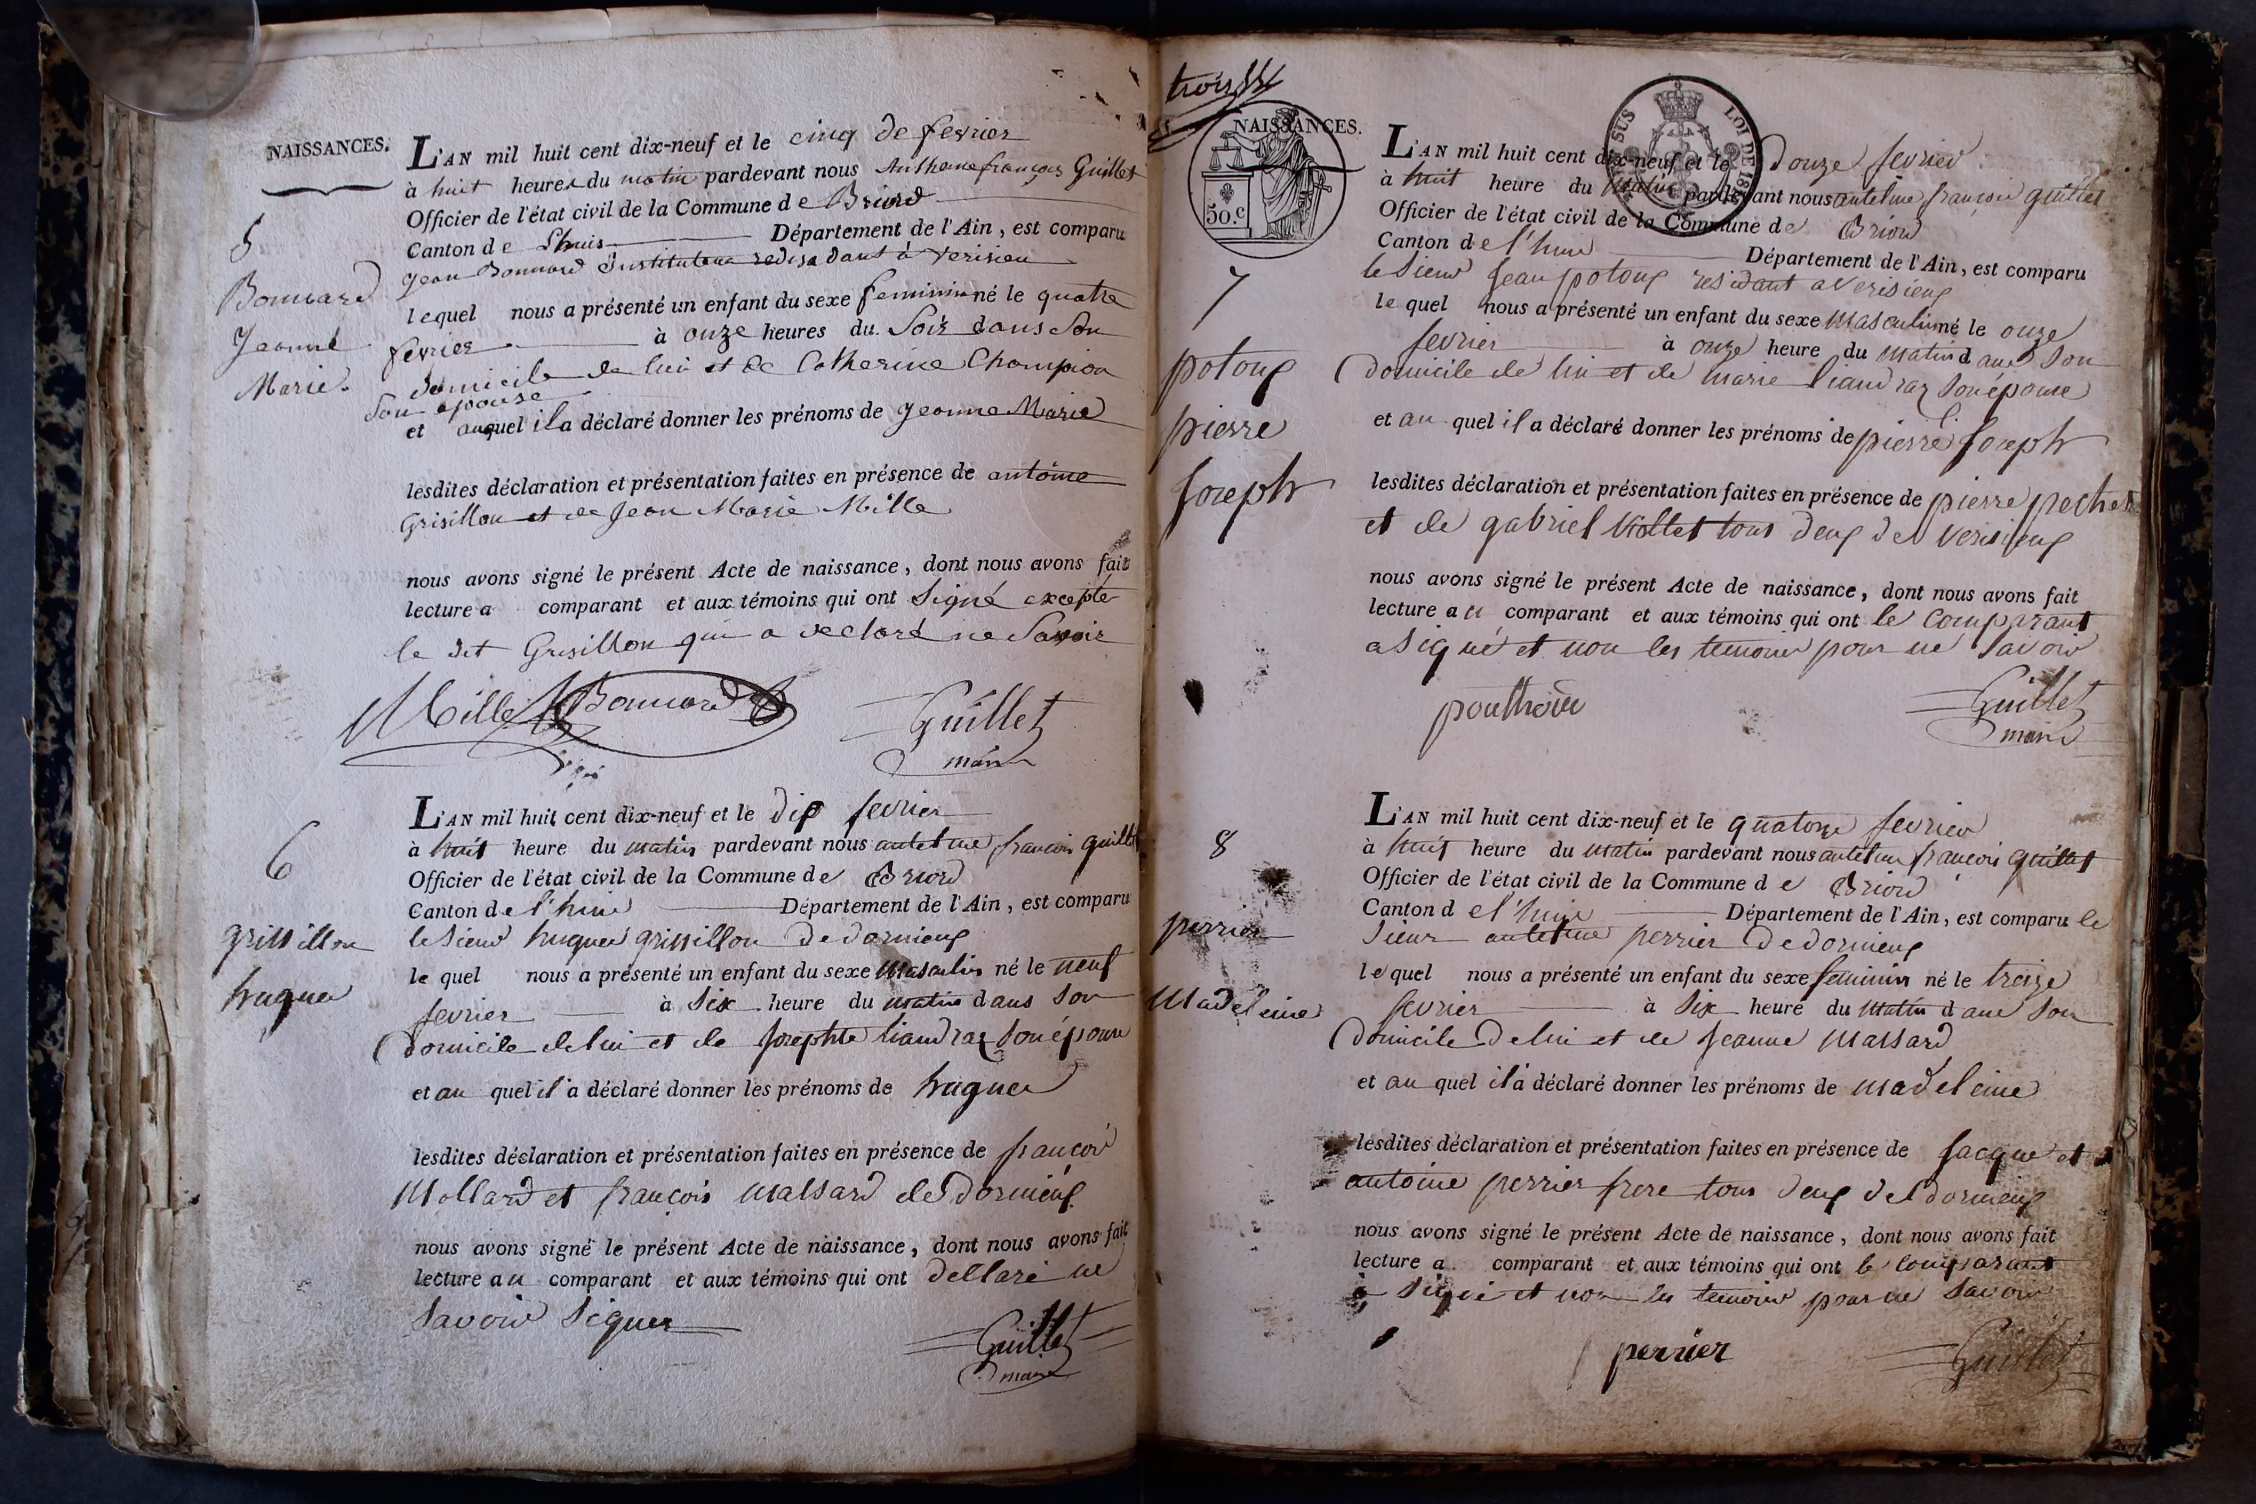 NAISSANCES.
5
Bonnard
Jeanne
Marie.
L'AN mil huit cent dix-neuf et le cinq de fevrier
à huit heures du matin pardevant nous Anthelme françois Guillet
Officier de l'état civil de la Commune de Briord
Canton de Lhuis Département de l'Ain, est comparu
jean Bonnard Instituteur residant à Verisieu
lequel nous a présenté un enfant du sexe feminin né le quatre
fevrier à onze heures du Soir dans Son
domicile de lui et de Catherine Champion
Son epouse
et auquel il a déclaré donner les prénoms de jeanne Marie
lesdites déclaration et présentation faites en présence de antoine
Grisillon et de Jean Marie Mille
nous avons signé le présent Acte de naissance, dont nous avons fait
lecture a comparant et aux témoins qui ont Signé excepté
le dit Grisillon qui a declaré ne Savoir
Mille Bonnard Guillet
maire
6
grissillon
hugues
L'AN mil huit cent dix-neuf et le dix fevrier
à huit heure du matin pardevant nous antelme francois guillet
Officier de l'état civil de la Commune de Briord
Canton de l'huis Département de l'Ain, est comparu
le Sieur hugues grissillon de dornieux
le quel nous a présenté un enfant du sexe masculin né le neuf
fevrier à six heure du matin dans son
domicile de lui et de josephte liandraz son épouse
et au quel il a déclaré donner les prénoms de hugues
lesdites déclaration et présentation faites en présence de françois
Mollard et françois massard de dornieux
nous avons signé le présent Acte de naissance, dont nous avons fait
lecture au comparant et aux témoins qui ont dellaré ne
savoir signer
Guillet
maire
trois
NAISSANCES.
50.c
TIMBRE SUS LOI DE 18
7
potoux
pierre
joseph
L'AN mil huit cent dix-neuf et le douze fevrier
à huit heure du matin pardevant nous antelme françois guillet
Officier de l'état civil de la Commune de Briord
Canton de l'huis Département de l'Ain, est comparu
le Sieur jean potoux residant a verisieux
le quel nous a présenté un enfant du sexe masculin né le onze
fevrier à onze heure du matin dans son
domicile de lui et de marie liandraz son épouse
et au quel il a déclaré donner les prénoms de pierre joseph
lesdites déclaration et présentation faites en présence de pierre pechet
et de gabriel Viollet tous deux de verisieux
nous avons signé le présent Acte de naissance, dont nous avons fait
lecture au comparant et aux témoins qui ont le comparant
a signé et non les temoins pour ne savoir
Guillet
maire
8
perrier
Madeleine
L'AN mil huit cent dix-neuf et le quatorze fevrier
à huit heure du matin pardevant nous antelme françois guillet
Officier de l'état civil de la Commune de Briord
Canton de l'huis Département de l'Ain, est comparu le
Sieur antelme perrier de dornieux
lequel nous a présenté un enfant du sexe feminin né le treize
fevrier à six heure du matin dans son
domicile de lui et de jeanne massard
et au quel il a déclaré donner les prénoms de madeleine
lesdites déclaration et présentation faites en présence de jacque et
antoine perrier frere tous deux de dornieux
nous avons signé le présent Acte de naissance, dont nous avons fait
lecture a comparant et aux témoins qui ont le comparant
a signé et non les temoins pour ne savoir
perrier Guillet